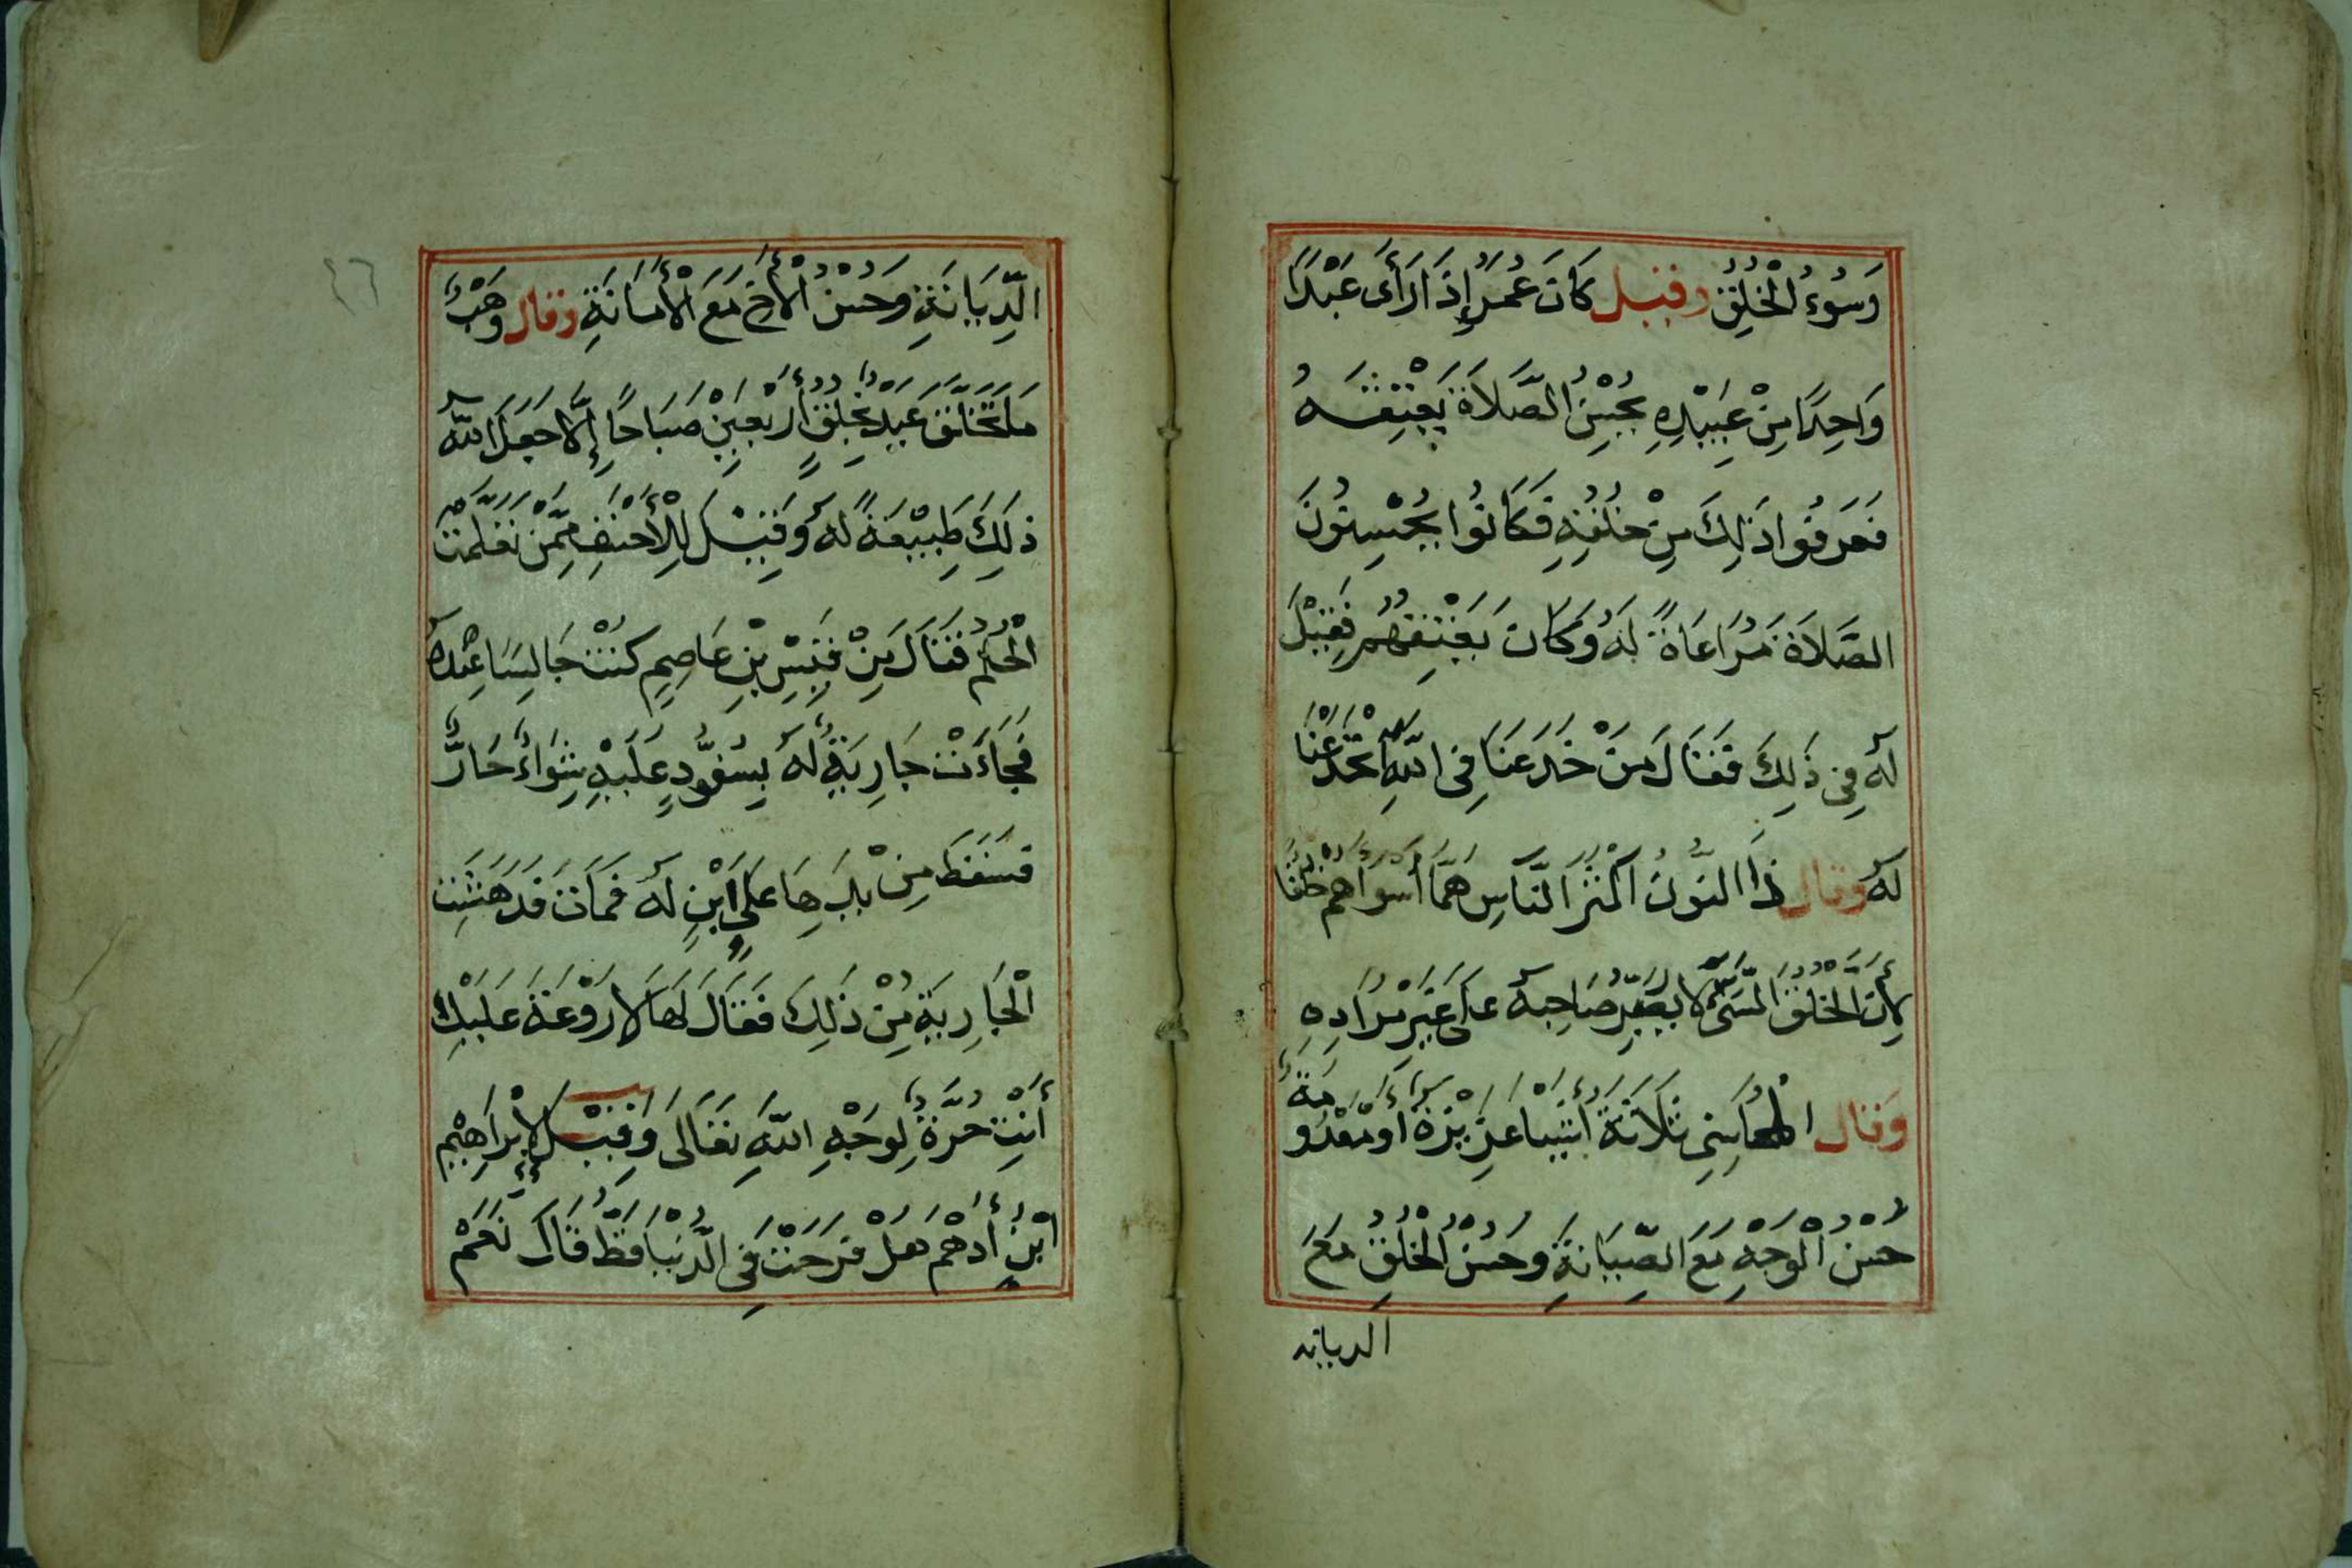 وَسُوءُ الْخُلُقِ وقيل كَانَ عُمَرُ إِذَا رَأَىَ عَبْدًا
وَاحِدًا مِنْ عَبِيْدِهِ يُحْسِنُ الصَّلَاةَ يَعْتِقُهُ
فَعَرَفُوا ذَلِكَ مِنْ خُلُقِهِ فَكَانُوا يُحْسِنُونَ
الصَّلَاةَ مُرَاعَاةً لَهُ وَكَانَ يَعْتِقُهُمْ فَقِيْلَ
لَهُ فِى ذَلِكَ فَقَالَ مَنْ خَدَعَنَا فِى اللَّهِ انْخَدَعْنَا
لَهُ وقال ذَا النُّونُ أَكْثَرُ النَّاسِ هَمًّا أَسْوَاهُمْ خُلُقًا
لِأَنَّ الْخُلُقَ السَّىِّءَ لَا يُصَيِّرُ صَاحِبَهُ عَلَى غَيْرِ مُرَادِهِ
وَقَال الْمُحَاسِبِى ثَلَاثَةُ أَشْيَا عَزِيْزَةٌ أَوْ مَعْدُومَةٌ
حُسْنُ الْوَجْهِ مَعَ الصِّيَانَةِ وَحُسْنُ الْخُلُقِ مَعَ
الديانة
٤٦
الدِّيَانَةِ وَحُسْنُ الْأَخِ مَعَ الْأَمَانَةِ وقال وَهَبٌ
مَا تَخَلَّقَ عَبْدٌ بِخُلُقٍ أَرْبَعِيْنَ صَبَاحًا إِلَّا جَعَلَ اللهُ
ذَلِكَ طَبِيْعَةً لَهُ وَقِيْلَ لِلْأَحْنَفِ مِمَّنْ تَعَلَّمْتَ
الْحُلُمَ فَقَالَ مِنْ قَيْسِ بْنِ عَاصِمٍ كُنْتُ جَالِسًا عِنْدَهُ
فَجَاءَتْ جَارِيَةٌ لَهُ بِسَفُّودٍ عَلَيْهِ شِوَاءٌ حَارٌّ
فَسَقَطَ مِنْ يَدِهَا عَلَى ابْنٍ لَهُ فَمَاتَ فَدَهَشَتِ
الْجَارِيَةُ مِنْ ذَلِكَ فَقَالَ لَهَا لَا رَوْعَةَ عَلَيْكِ
أَنْتِ حُرَّةٌ لِوَجْهِ اللَّهِ تَعَالَى وَقِيْلَ لِإِبْرَاهِيْمَ
ابْنِ أَدْهَمْ هَلْ فَرَحْتَ فِى الدُّنْيَا قَطُّ قَالَ نَعَمْ